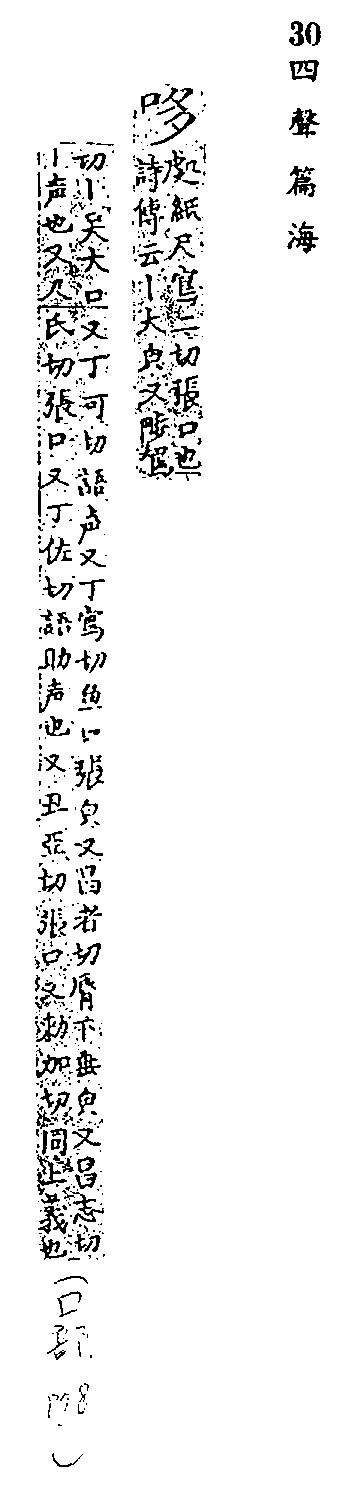 30四聲篇海
哆
處紙尺寫二切張口也
詩傳云丨大皃又陟
切丨吴大口又丁可切語声又丁寫切魚口張皃又昌者切脣下垂皃又昌志切
丨声也又尺氏切張口又丁佐切語助声也又丑亞切張口又勑加切同上義也
(口部